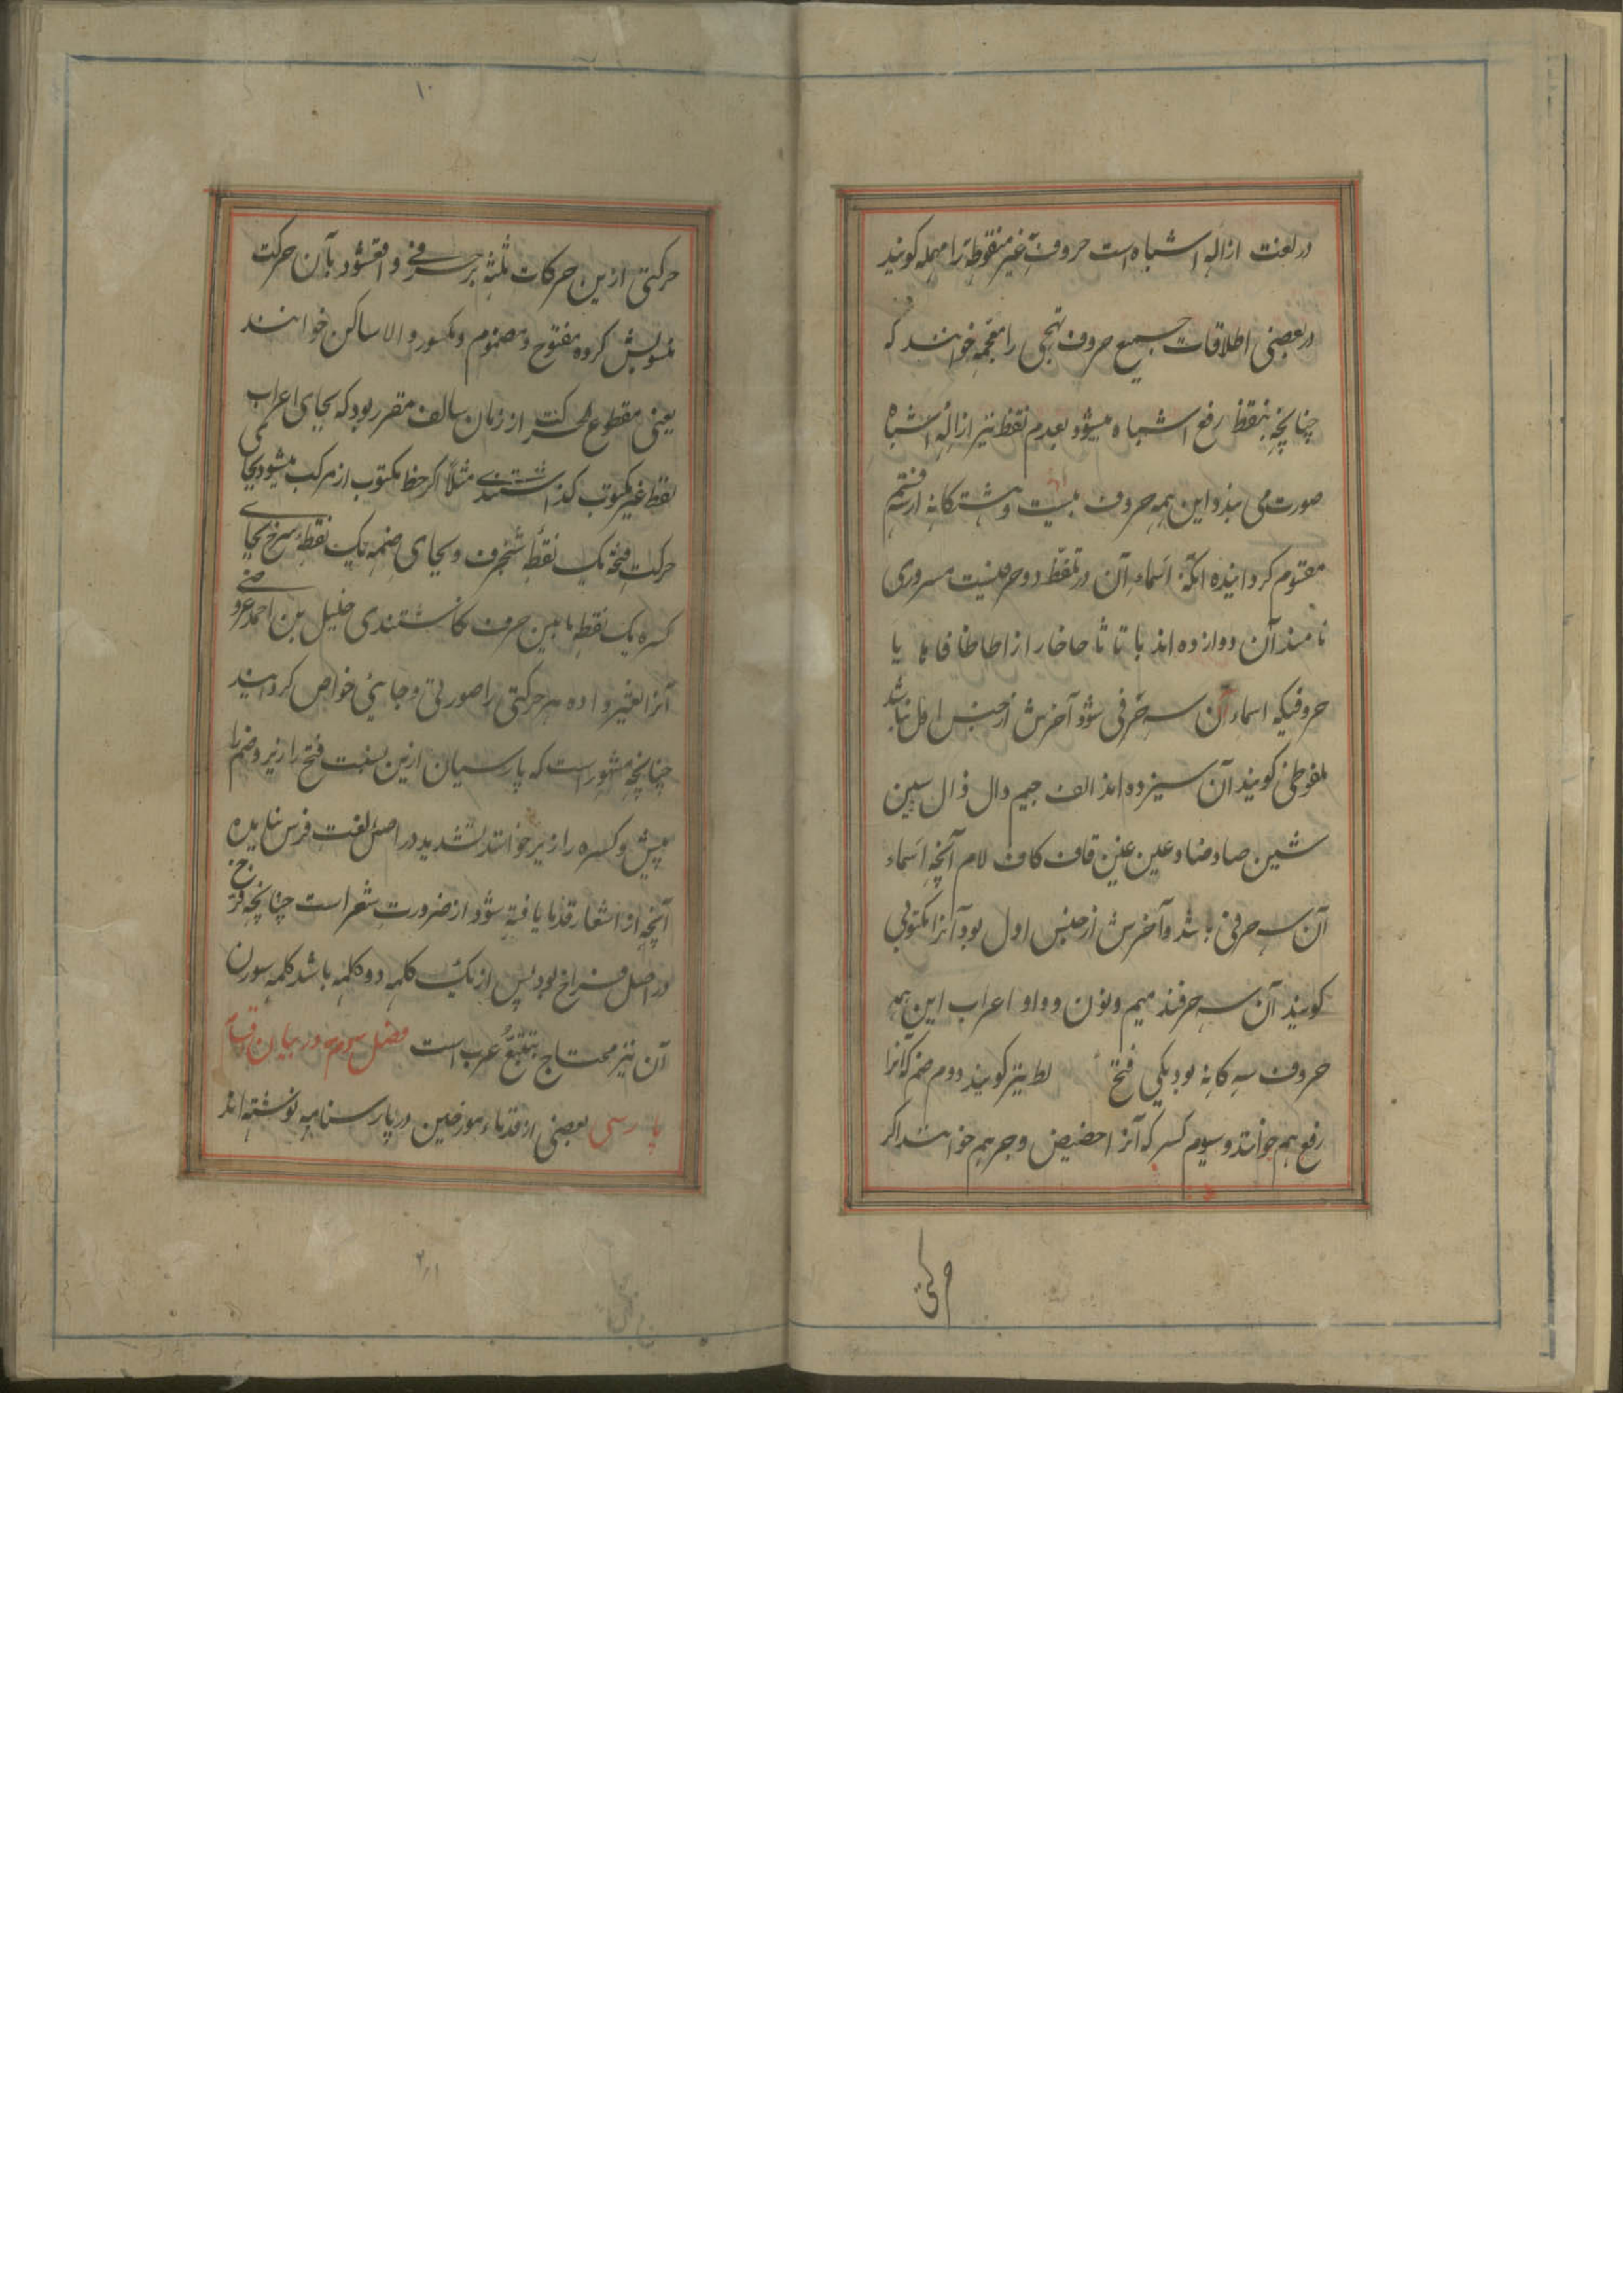 در لغت ازالهٔ اشتباه است حروف غیر منقوطه را مهمله کویند
در بعضی اطلاقات جمیع حروف تهجی را معجمه خوانند که
چنانچه بنقط رفع اشتباه میشود بعدم نقط نیز ازالهٔ اشتباه
صورت می بندد این همه حروف بیست و هشتکانه از سه قسم
مقسوم کردانیده آنکه اسماء آن در تلفظ دو حرفیست مسروری
نامند آن دوازده اند با تا ثا حا خا را زا طا ظا فا ها یا
حروفیکه اسماء آن سه حرفی شود آخرش از جنس اول نباشد
ملفوظی کویند آن سیزده اند الف جیم دال ذال سین
شین صاد ضاد عین غین قاف کاف لام آنچه اسماء
آن سه حرفی باشد و آخرش از جنس اول بود آنرا مکتوبی
کویند آن سه حرفند میم و نون و واو اعراب این همه
حروف سه کانه بود یکی فتح نیز کویند دوم ضم که آنرا
رفع هم خوانند و سیوم کسر که آنرا حضیض و جر هم خوانند اکر
حرکتی
۱۰
حرکتی ازین حرکات ثلثه بر حرفی واقع شود بآن حرکت
منسوبش کرده مفتوح و مضموم و مکسور و الا ساکن خوانند
یعنی مقطوع الحرکت از زمان سالف مقرر بود که بجای اعراب
نقط غیر مکتوب کذاشتندی مثلاً اکر خط مکتوب از مرکب میشود بجای
حرکت فتحه یک نقطهٔ شنجرف و بجای ضمه یک نقطهٔ سرخ بجای
کسره یک نقطه مابین حرف کاشتندی خلیل بن احمد عروضی
آنرا تغیر داده هر حرکتی را صورتی و جایی خواص کردانید
چنانچه مشهور است که پارسیان ازین نسبت فتح را زبر و ضم را
پیش و کسره را زیر خوانند تشدید در اصل لغت فرس نیامده
آنچه از اشعار قدما یافته شود از ضرورت شعر است چنانچه فرخ
در اصل فراخ بود پس از یک کلمه دو کلمه باشد کلمه سوران
آن نیز محتاج بتتبع عرب است فصل سوم در بیان اقسام
پارسی بعضی از قدماء مورخین در پارسنامه نوشته اند